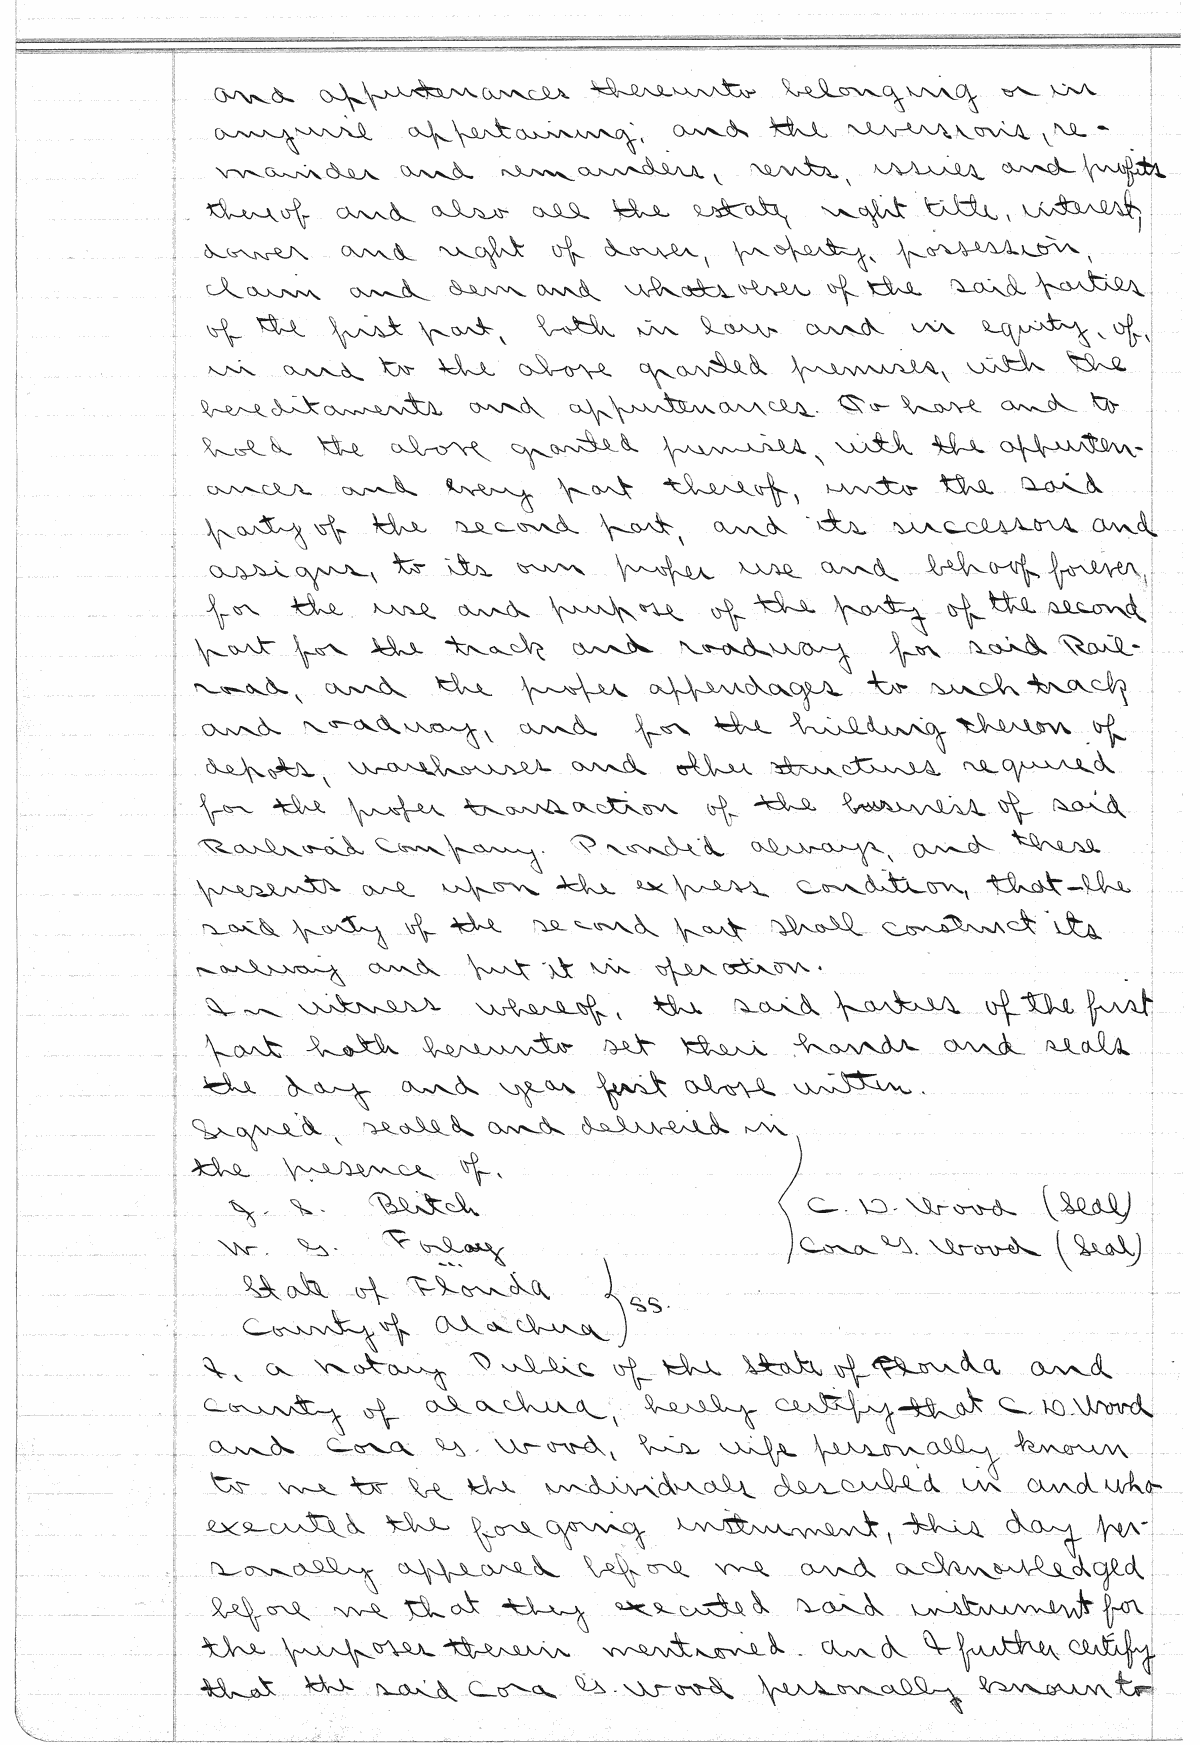 and appurtenances thereunto belonging or in
anywise appertaining; and the reversions, re-
mainder and remainders, rents, issues and profits
thereof and also all the estate, right title, interest,
dower and right of dower, property, possession,
claim and demand whatsoever of the said parties
of the first part, both in law and in equity, of,
in and to the above granted premises, with the
hereditaments and appurtenances. To have and to
hold the above granted premises, with the appurten-
ances and every part thereof, unto the said
party of the second part, and its successors and
assigns, to its own proper use and behoof forever,
for the use and purpose of the party of the second
part for the track and roadway for said Rail-
road, and the proper appendages to such track
and roadway, and for the building thereon of
depots, warehouses and other structures required
for the proper transaction of the business of said
Railroad Company. Provided always, and these
presents are upon the express condition, that the
said party of the second part shall construct its
railway and put it in operation.
In witness whereof, the said parties of the first
part hath hereunto set their hands and seals
the day and year first above written.
Signed, sealed and delivered in
the presence of,
J. S. Blitch
C. D. Wood (Seal)
W. G.
Cora G. Wood (Seal)
State of Florida
SS.
County of Alachua
I, a Notary Public of the State of Florida and
County of Alachua, hereby certify that C. D. Wood
and Cora G. Wood, his wife personally known
to me to be the individuals described in and who
executed the foregoing instrument, this day per-
sonally appeared before me and acknowledged
before me that they executed said instrument for
the purposes therein mentioned. And I further certify
that the said Cora G. Wood personally known to